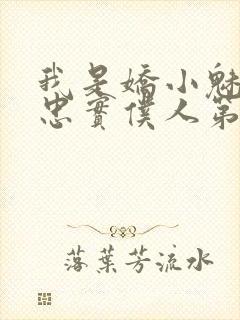 我是嬌小魅
忠實僕人第
落葉芳流水